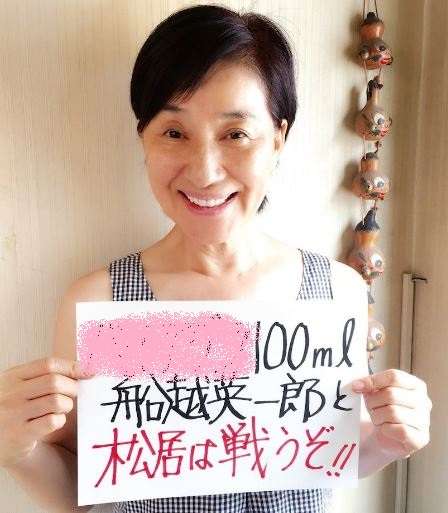 100ml
船越英一郎と
松居は戦うぞ!!